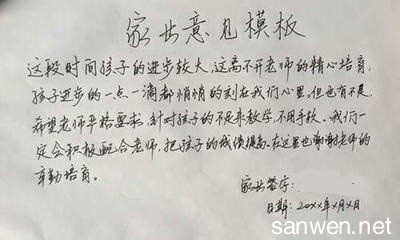 家长意见模板
这段时间孩子的进步较大,这离不开老师的精心培育,
孩子进步的一点一滴都悄悄的刻在我们心里,但也有不足,
希望老师严格要求,针对孩子的不足来教学,不用手软。我们一
定会积极配合老师,把孩子的成绩提高。在这里也谢谢老师的
辛勤培育。
家长签字:
日期:20xx年x月x日
sanwen.net